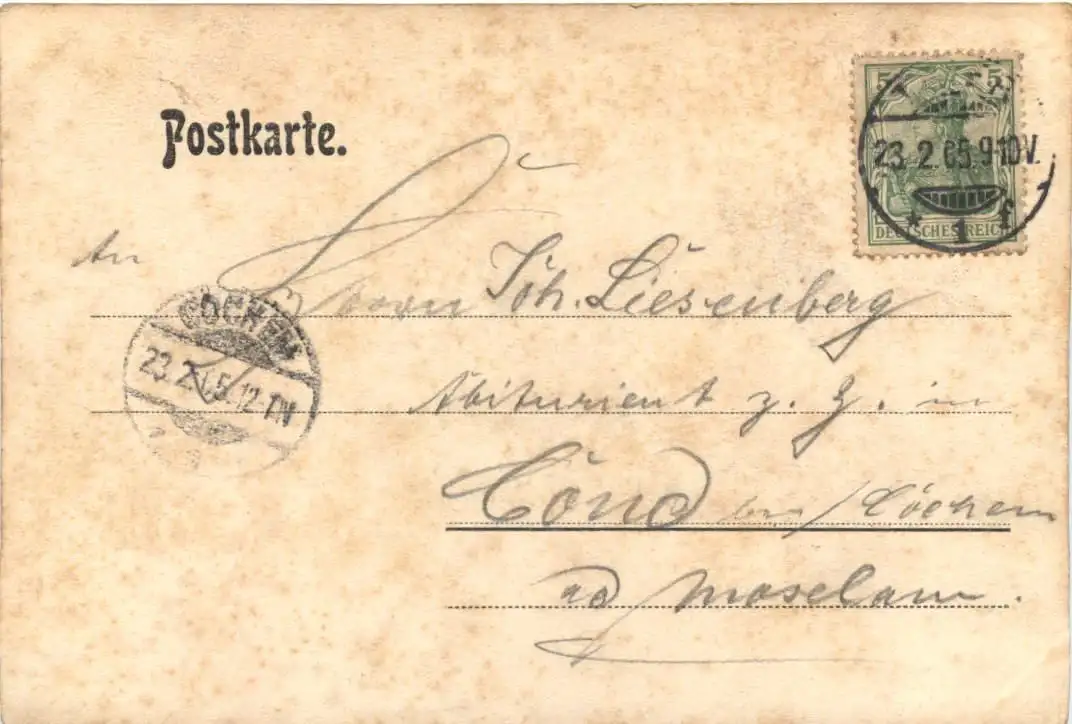 Postkarte.
5 5
23.2.05.9-10V.
* 1 f
DEUTSCHES REICH
An
Herrn Joh. Liesenberg
COCHEM
23.2.05.12-1N
Abiturient z. Z. in
Cond bei/Cochem
ad Moselam.